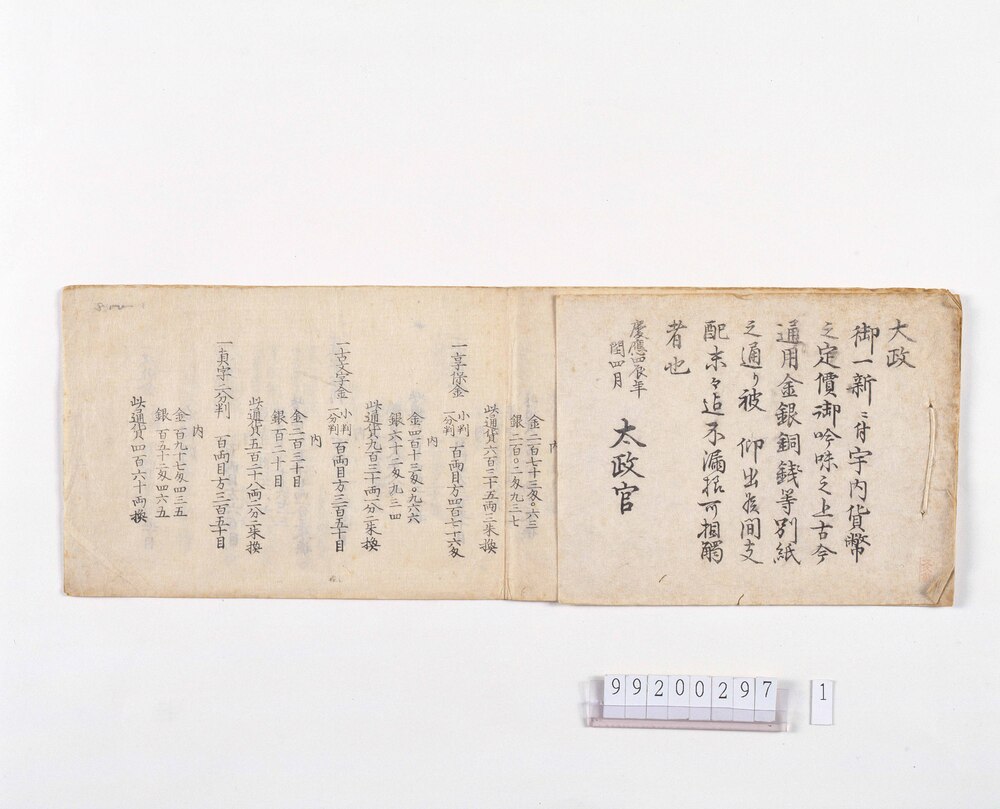 大政
御一新ニ付宇内貨幣
之定價御吟味之上古今
通用金銀銅錢等別紙
之通り被 仰出候間支
配末々迄不漏様可相觸
者也
慶應四辰年
閏四月
太政官
内
金二百七十三匁〇六三
銀二百〇二匁九三七
此通貨六百三十五両二朱換
一享保金 小判 一分判 百両目方四百七十六匁
内
金四百十三匁〇九六六
銀六十二匁九三四
此通貨九百三十両一分二朱換
一古文字金 小判 一分判 百両目方三百五十目
内
金二百三十目
銀百二十目
此通貨五百二十八両二分二朱換
一真字二分判 百両目方三百五十目
内
金百九十七匁四三五
銀百五十二匁四六五
此通貨四百六十両換
99200297 1